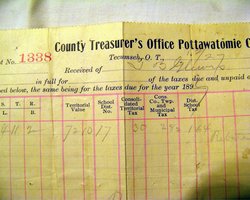 County Treasurer's Office Pottawatomie C
No. 1338
Tecumseh, O. T.,
Received of
in full for of the taxes due and unpaid o
bed below, the same being the taxes due for the year 189
S. T. R. Territorial Value School Dist. No. Consolidated Territorial Tax Con. Co., Twp. and Municipal Tax Dist. School Tax
L. B.
4 11 2 72 10 17 30 2 92 1 64